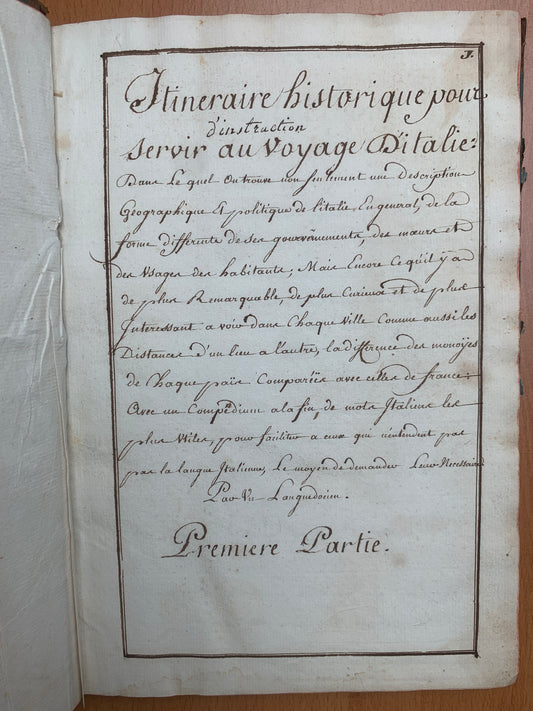 1.
Itineraire historique pour
d'instruction
servir au Voyage D'italie:
Dans Le quel On trouve non seulement une Description
Geographique Et politique de l'italie En general, de la
forme differente de ses gouvernements, des mœurs et
des Usages des habitants, Mais Encore Ce qu'il y a
de plus Remarquable, de plus Curieux et de plus
Interessant a voir dans Chaque Ville Comme aussi les
Distances d'un lieu a l'autre, la difference des monoÿes
de Chaque païs Comparëes avec celles de france:
Avec un Compêdium a la fin, de mots Italiens les
plus Utiles, pour faciliter a ceux qui n'entendent pas
pas la langue Italienne, Le moyen de demander Leur Necessaire
Par Un Languedocien.
Premiere Partie.